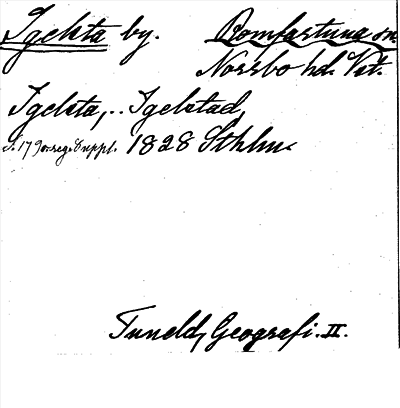 Igelsta by. Romfartuna sn.
Norrbo hd. Vst.
Igelsta,.. Igelstad,
S. 179 o. reg. Suppl. 1828 Sthlm
Tuneld, Geografi. II.